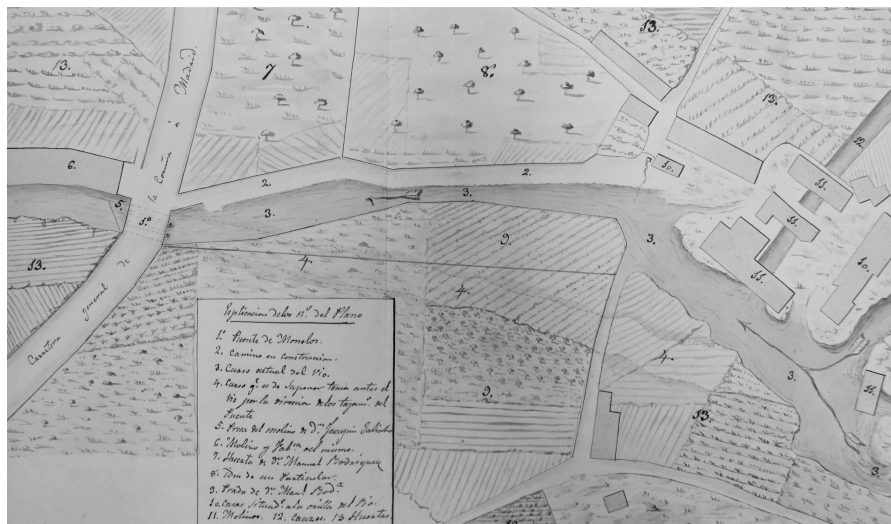 13.
7
8.
13.
13.
12.
Carretera general de la Coruña á Madrid.
6.
2.
2.
10.
11.
5.
1.º
3.
3.
3.
9.
11.
10.
13.
4.
4.
11.
4.
9.
13.
3.
11.
3.
Esplicacion de los n.º del Plano
1.º Puente de Monelos.
2. Camino en construccion.
3. Curso actual del rio.
4. Curso q.e es de suponer tenia antes el
rio por la direccion de los tajam.s del
Puente
5. Presa del molino de D.n Joaquin Galiacho
6. Molino y Fab.ca del mismo.
7. Huerta de D.n Manuel Rodriguez
8. Idm de un Particular.
9. Prado de D.n Man.l Rod.z
10. Casas situad.s a la orilla del Rio.
11. Molinos. 12. Cauces. 13 Huertas